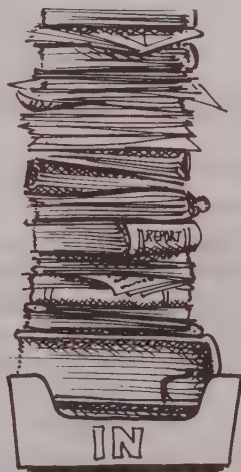 REPORT
IN